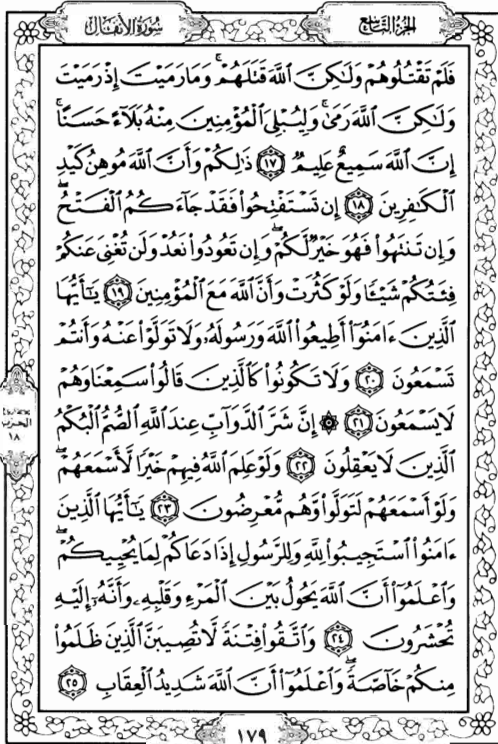 الجزء التاسع
سورة الأنفال
فَلَمْ تَقْتُلُوهُمْ وَلَٰكِنَّ اللَّهَ قَتَلَهُمْ ۚ وَمَا رَمَيْتَ إِذْ رَمَيْتَ
وَلَٰكِنَّ اللَّهَ رَمَىٰ ۚ وَلِيُبْلِيَ الْمُؤْمِنِينَ مِنْهُ بَلَاءً حَسَنًا ۚ
إِنَّ اللَّهَ سَمِيعٌ عَلِيمٌ ١٧ ذَٰلِكُمْ وَأَنَّ اللَّهَ مُوهِنُ كَيْدِ
الْكَافِرِينَ ١٨ إِن تَسْتَفْتِحُوا فَقَدْ جَاءَكُمُ الْفَتْحُ ۖ
وَإِن تَنتَهُوا فَهُوَ خَيْرٌ لَّكُمْ ۖ وَإِن تَعُودُوا نَعُدْ وَلَن تُغْنِيَ عَنكُمْ
فِئَتُكُمْ شَيْئًا وَلَوْ كَثُرَتْ وَأَنَّ اللَّهَ مَعَ الْمُؤْمِنِينَ ١٩ يَا أَيُّهَا
الَّذِينَ آمَنُوا أَطِيعُوا اللَّهَ وَرَسُولَهُ وَلَا تَوَلَّوْا عَنْهُ وَأَنتُمْ
تَسْمَعُونَ ٢٠ وَلَا تَكُونُوا كَالَّذِينَ قَالُوا سَمِعْنَا وَهُمْ
لَا يَسْمَعُونَ ٢١ ۞ إِنَّ شَرَّ الدَّوَابِّ عِندَ اللَّهِ الصُّمُّ الْبُكْمُ
الَّذِينَ لَا يَعْقِلُونَ ٢٢ وَلَوْ عَلِمَ اللَّهُ فِيهِمْ خَيْرًا لَّأَسْمَعَهُمْ ۖ
وَلَوْ أَسْمَعَهُمْ لَتَوَلَّوا وَّهُم مُّعْرِضُونَ ٢٣ يَا أَيُّهَا الَّذِينَ
آمَنُوا اسْتَجِيبُوا لِلَّهِ وَلِلرَّسُولِ إِذَا دَعَاكُمْ لِمَا يُحْيِيكُمْ ۖ
وَاعْلَمُوا أَنَّ اللَّهَ يَحُولُ بَيْنَ الْمَرْءِ وَقَلْبِهِ وَأَنَّهُ إِلَيْهِ
تُحْشَرُونَ ٢٤ وَاتَّقُوا فِتْنَةً لَّا تُصِيبَنَّ الَّذِينَ ظَلَمُوا
مِنكُمْ خَاصَّةً ۖ وَاعْلَمُوا أَنَّ اللَّهَ شَدِيدُ الْعِقَابِ ٢٥
الحزب
١٨
١٧٩